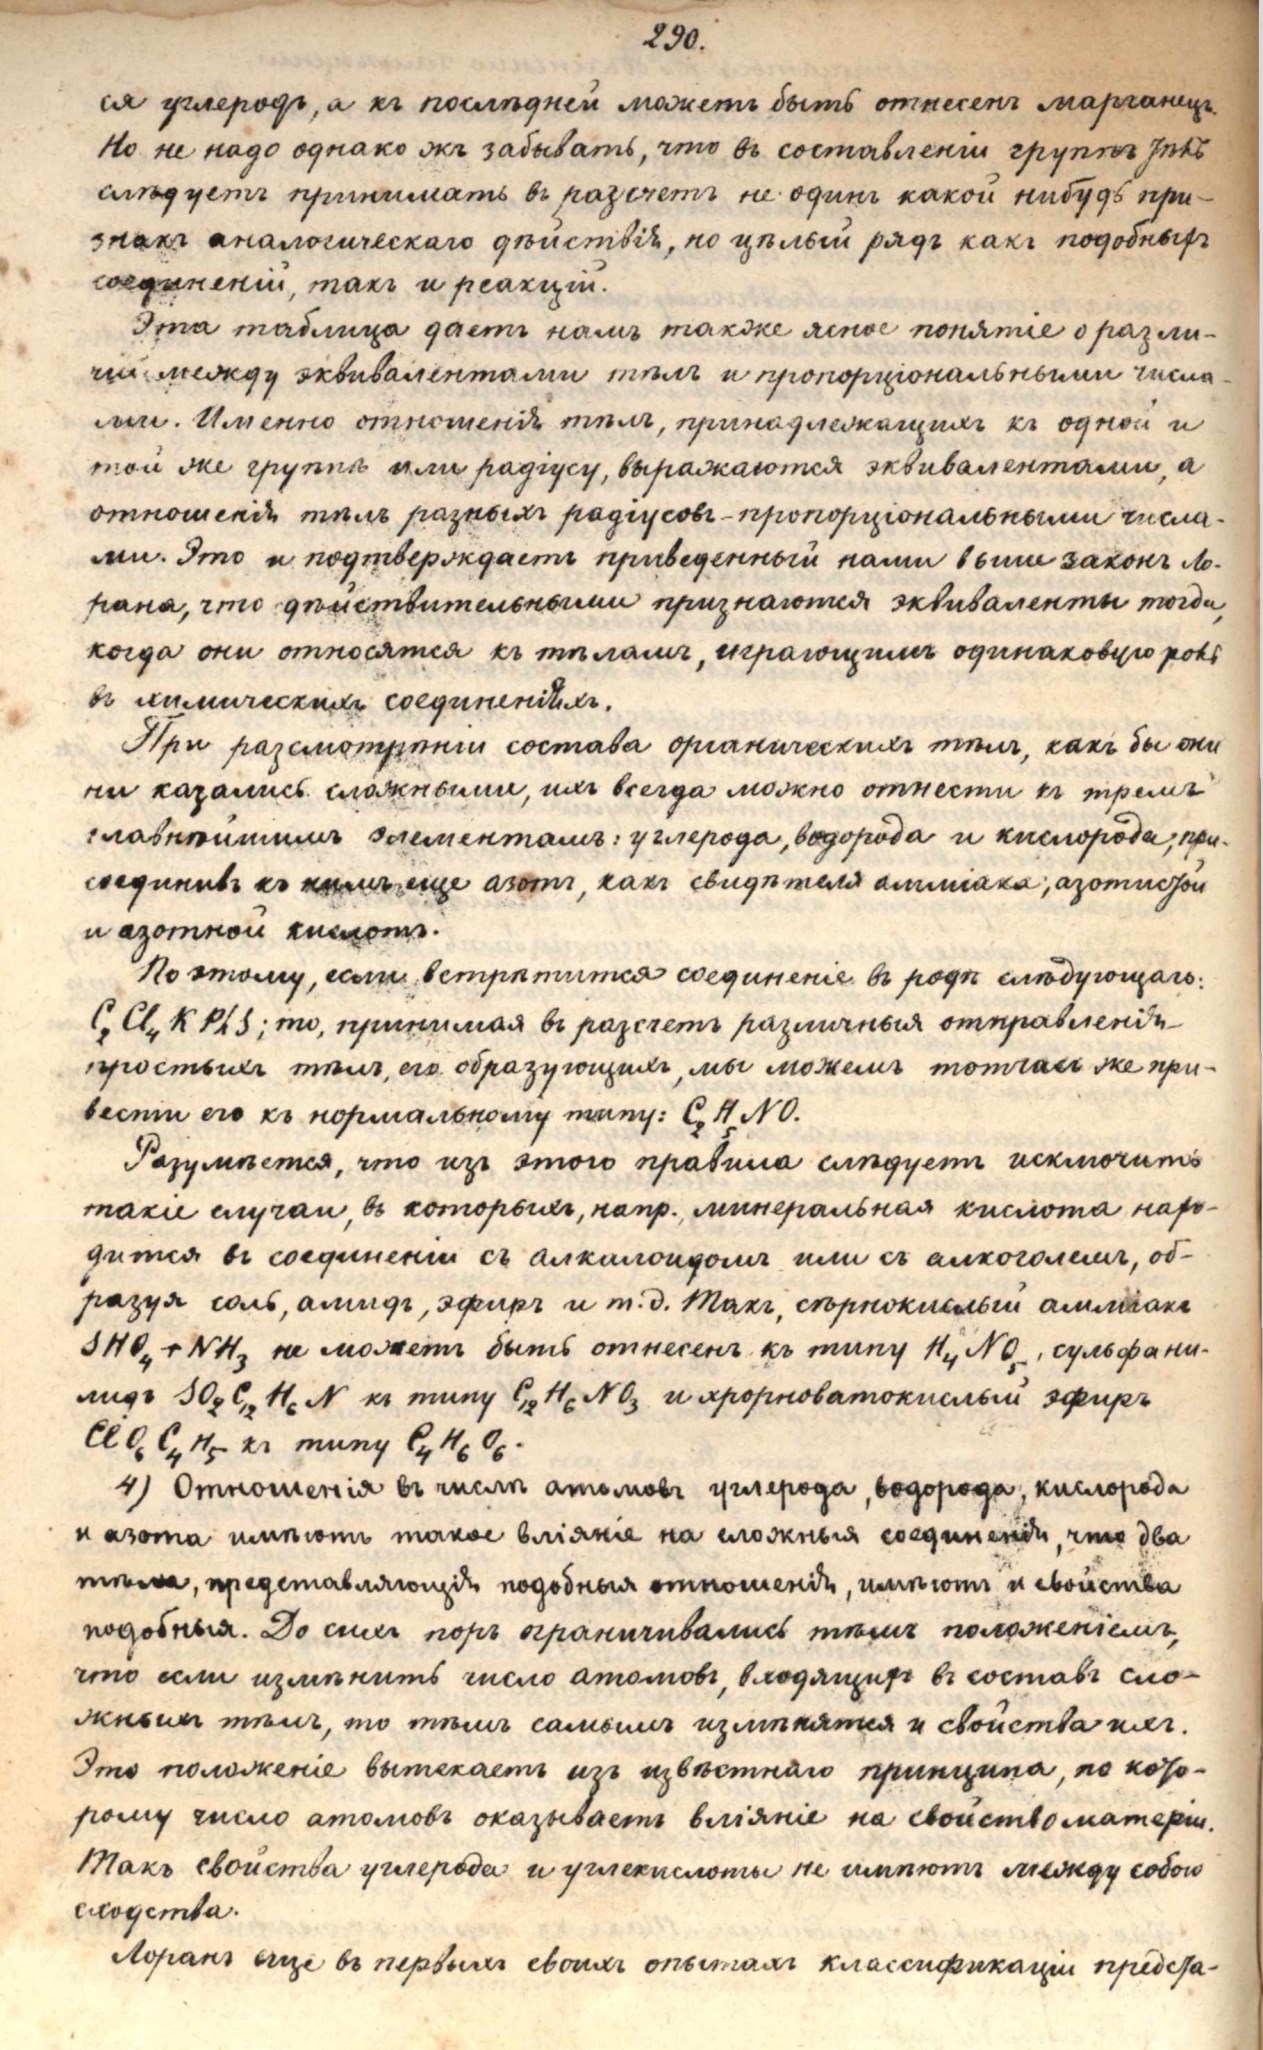 290.
ся углеродъ, а къ послѣдней можетъ быть отнесенъ марганецъ.
Но не надо однако жъ забывать, что въ составленіи группъ
слѣдуетъ принимать въ разсчетъ не одинъ какой нибудь при-
знакъ аналогическаго дѣйствія, но цѣлый рядъ какъ подобныхъ
соединеній, такъ и реакцій.
Эта таблица даетъ намъ также ясное понятіе о разли-
чіи между эквивалентами тѣлъ и пропорціональными числа-
ми. Именно отношенія тѣлъ, принадлежащихъ къ одной и
той же группѣ или радіусу, выражаются эквивалентами, а
отношенія тѣлъ разныхъ радіусовъ - пропорціональными числа-
ми. Это и подтверждаетъ приведенный нами выше законъ Ло-
рана, что дѣйствительными признаются эквиваленты тогда,
когда они относятся къ тѣламъ, играющимъ одинаковую роль
въ химическихъ соединеніяхъ.
При разсмотрѣніи состава органическихъ тѣлъ, какъ бы они
ни казались сложными, ихъ всегда можно отнести къ тремъ
главнѣйшимъ элементамъ: углерода, водорода и кислорода, при-
соединивъ къ нимъ еще азотъ, какъ свидѣтеля амміака, азотистой
и азотной кислотъ.
По этому, если встрѣтится соединеніе въ родѣ слѣдующаго:
C₂ Cl₄ K Ph S; то, принимая въ разсчетъ различныя отправленія
простыхъ тѣлъ, его образующихъ, мы можемъ тотчасъ же при-
вести его къ нормальному типу: C₂ H₅ NO.
Разумѣется, что изъ этого правила слѣдуетъ исключить
такіе случаи, въ которыхъ, напр., минеральная кислота нахо-
дится въ соединеніи съ алкалоидомъ или съ алкоголемъ, об-
разуя соль, амидъ, эфиръ и т.д. Такъ, сѣрнокислый амміакъ
SHO₄ + NH₃ не можетъ быть отнесенъ къ типу H₄ NO₅, сульфани-
лидъ SO₂ C₁₂ H₆ N къ типу C₁₂ H₆ NO₃ и хлорноватокислый эфиръ
Cl O₆ C₄ H₅ къ типу C₄ H₆ O₆.
4) Отношенія въ числѣ атомовъ углерода, водорода, кислорода
и азота имѣютъ такое вліяніе на сложныя соединенія, что два
тѣла, представляющія подобныя отношенія, имѣютъ и свойства
подобныя. До сихъ поръ ограничивались тѣмъ положеніемъ,
что если измѣнить число атомовъ, входящихъ въ составъ сло-
жныхъ тѣлъ, то тѣмъ самымъ измѣнятся и свойства ихъ.
Это положеніе вытекаетъ изъ извѣстнаго принципа, по кото-
рому число атомовъ оказываетъ вліяніе на свойство матеріи.
Такъ свойства углерода и углекислоты не имѣютъ между собою
сходства.
Лоранъ еще въ первыхъ своихъ опытахъ классификаціи предста-